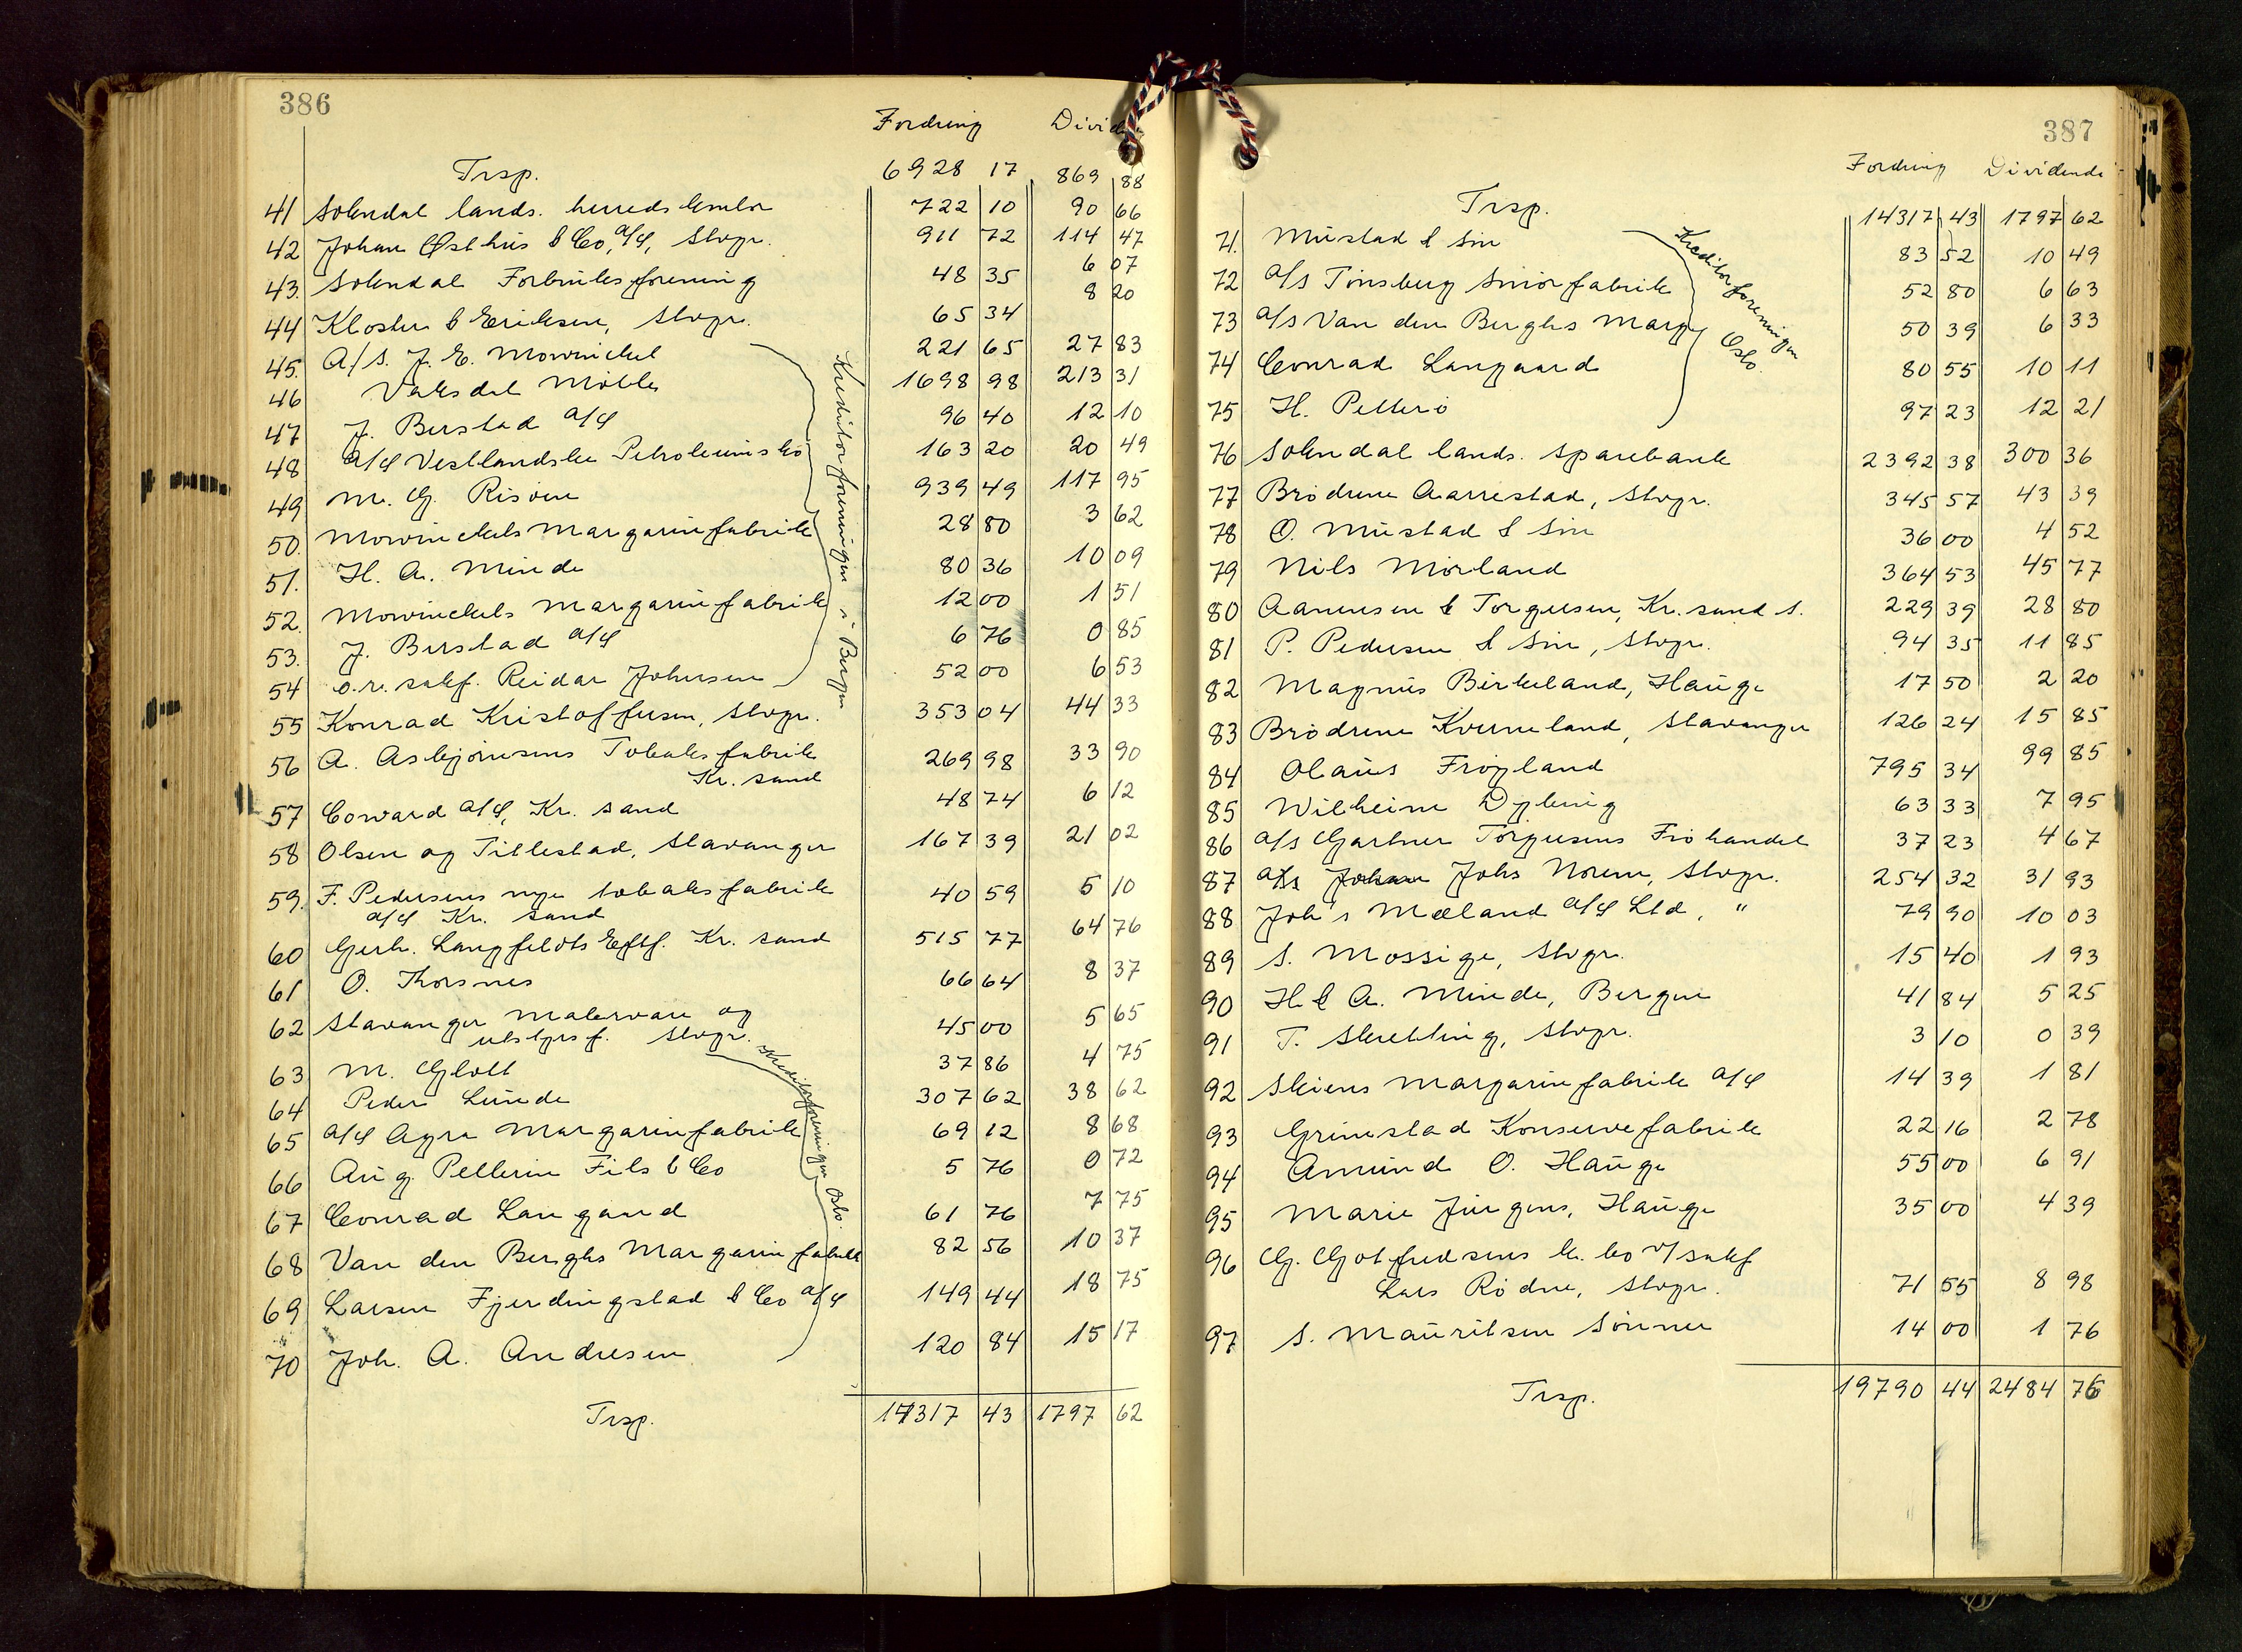 386
Fordring Divid
Trsp. 6928 17 869 88
41 Sokndal lands. herredskemlor 722 10 90 66
42 Johan Østhus & Co, A/S, Stvgr. 911 72 114 47
43. Sokndal Forbruksforening 48 35 6 07
44 Kloster & Eriksen, Stvgr. 65 34 8 20
45. A/S. J. E. Mowinckel 221 65 27 83
46 Vaksdal Mölle 1698 98 213 31
47 J. Berstad A/S 96 40 12 10
48 A/S Vestlandske Petroleumsko 163 20 20 49
49 M. G. Risöen 939 49 117 95
50. Mowinckels Margarinfabrik 28 80 3 62
51. H. A. Minde 80 36 10 09
52. Mowinckels Margarinfabrik 12 00 1 51
53. J. Berstad A/S 6 76 0 85
54 o.r. sakf. Reidar Johnsen 52 00 6 53
Kreditorforeningen i Bergen
55 Konrad Kristoffersen, Stvgr. 353 04 44 33
56 A. Asbjörnsens Tobaksfabrik 269 98 33 90
Kr. sand
57 Coward A/S, Kr. sand 48 74 6 12
58 Olsen og Tillestad, Stavanger 167 39 21 02
59. F. Pedersens nye tobaksfabrik 40 59 5 10
A/S Kr. sand
60 Gerh. Langfeldts Eftf. Kr. sand 515 77 64 76
61 O. Thorsnes 66 64 8 37
62 Stavanger malervare og 45 00 5 65
utstyrsf. Stvgr.
63 M. Glott 37 86 4 75
64 Peder Lunde 307 62 38 62
65 A/S Agra Margarinfabrik 69 12 8 68
66 Aug. Pellerin Fils & Co 5 76 0 72
67 Conrad Langaard 61 76 7 75
68 Van den Berghs Margarinfabrik 82 56 10 37
69 Larsen Fjerdingstad & Co A/S 149 44 18 75
70 Joh. A. Andresen 120 84 15 17
Kreditorforeningen Oslo.
Trsp. 14317 43 1797 62
387
Fordring Dividende
Trsp. 14317 43 1797 62
71. Mustad & Sön 83 52 10 49
72 A/S Tönsberg Smörfabrik 52 80 6 63
73 A/S Van den Berghs Marg 50 39 6 33
74 Conrad Langaard 80 55 10 11
75 H. Petterö 97 23 12 21
Kreditorforeningen Oslo.
76 Sokndal lands. sparebank 2392 38 300 36
77 Brödrene Aarrestad, Stvgr. 345 57 43 39
78 O. Mustad & Sön 36 00 4 52
79 Nils Mörland 364 53 45 77
80 Aanensen & Torgersen, Kr. sand S. 229 39 28 80
81 P. Pedersen & Sön, Stvgr. 94 35 11 85
82 Magnus Birkeland, Hauge 17 50 2 20
83 Brödrene Kverneland, Stavanger 126 24 15 85
84 Olaus Fröyland 795 34 99 85
85 Wilhelm Dybing 63 33 7 95
86 A/S Gartner Torgersens Fröhandel 37 23 4 67
87 A/S Johan Johs Norem, Stvgr. 254 32 31 93
88 Joh's Mæland A/S Ltd, " 79 90 10 03
89 S. Mossige, Stvgr. 15 40 1 93
90 H & A. Minde, Bergen 41 84 5 25
91 T. Skretting, Stvgr. 3 10 0 39
92 Skiens Margarinfabrik A/S 14 39 1 81
93 Grimstad Konservefabrik 22 16 2 78
94 Amund O. Hauge 55 00 6 91
95 Marie Jörgens, Hauge 35 00 4 39
96 G. Gotfredsens k. bo v/ sakf
Lars Rödne, Stvgr. 71 55 8 98
97 S. Mauritsen Sönner 14 00 1 76
Trsp. 19790 44 2484 76